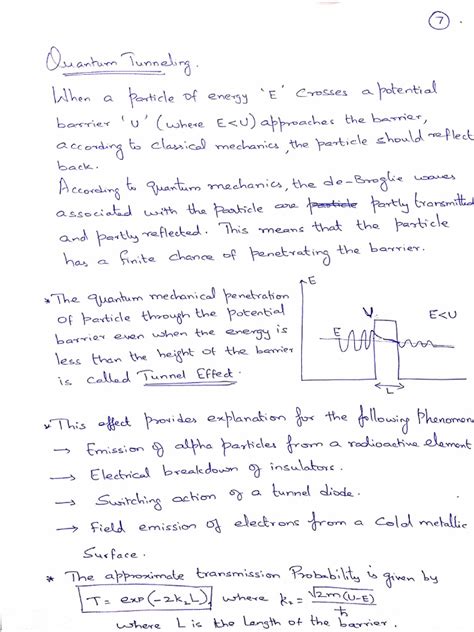 7
Quantum Tunneling.
When a particle of energy 'E' crosses a potential
barrier 'U' (where E<U) approaches the barrier,
according to classical mechanics, the particle should reflect
back.
According to quantum mechanics, the de-Broglie waves
associated with the particle are particle partly transmitted
and partly reflected. This means that the particle
has a finite chance of penetrating the barrier.
* The quantum mechanical penetration
of particle through the potential
barrier even when the energy is
less than the height of the barrier
is called Tunnel Effect.
E
V
E<U
E
L
* This effect provides explanation for the following Phenomen
→ Emission of alpha particles from a radioactive element
→ Electrical breakdown of insulators.
→ Switching action of a tunnel diode.
→ Field emission of electrons from a cold metallic
Surface.
* The approximate transmission Probability is given by
T = exp(-2k₂L), where k₂ = √2m(U-E) / ħ
where L is the length of the barrier.